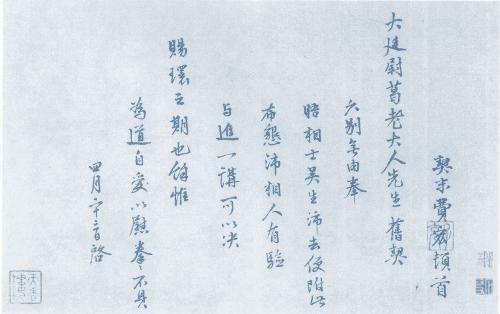 契末費宏頓首
大廷尉葛老大人先生舊契
久別無由奉
晤相士吳生沛去便附此
布懇沛相人有驗
与進一講可以决
賜環之期也餘惟
為道自愛以慰拳々不具
四月日啓